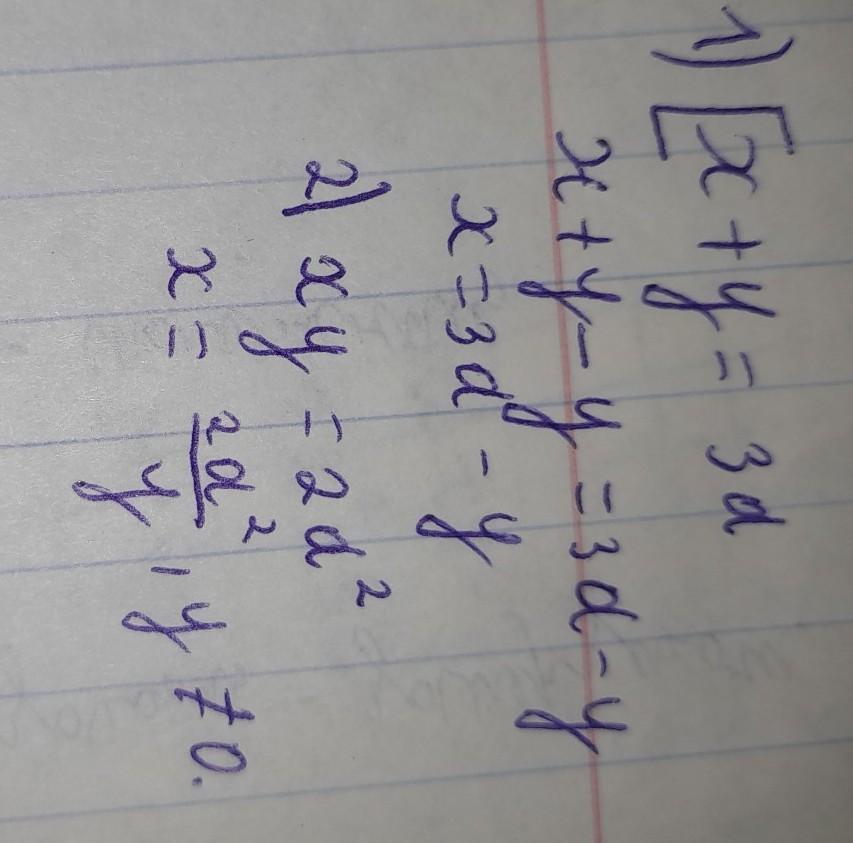 1) [x + y = 3d
x + y - y = 3d - y
x = 3d - y
2) xy = 2d²
x = 2d²/y, y ≠ 0.